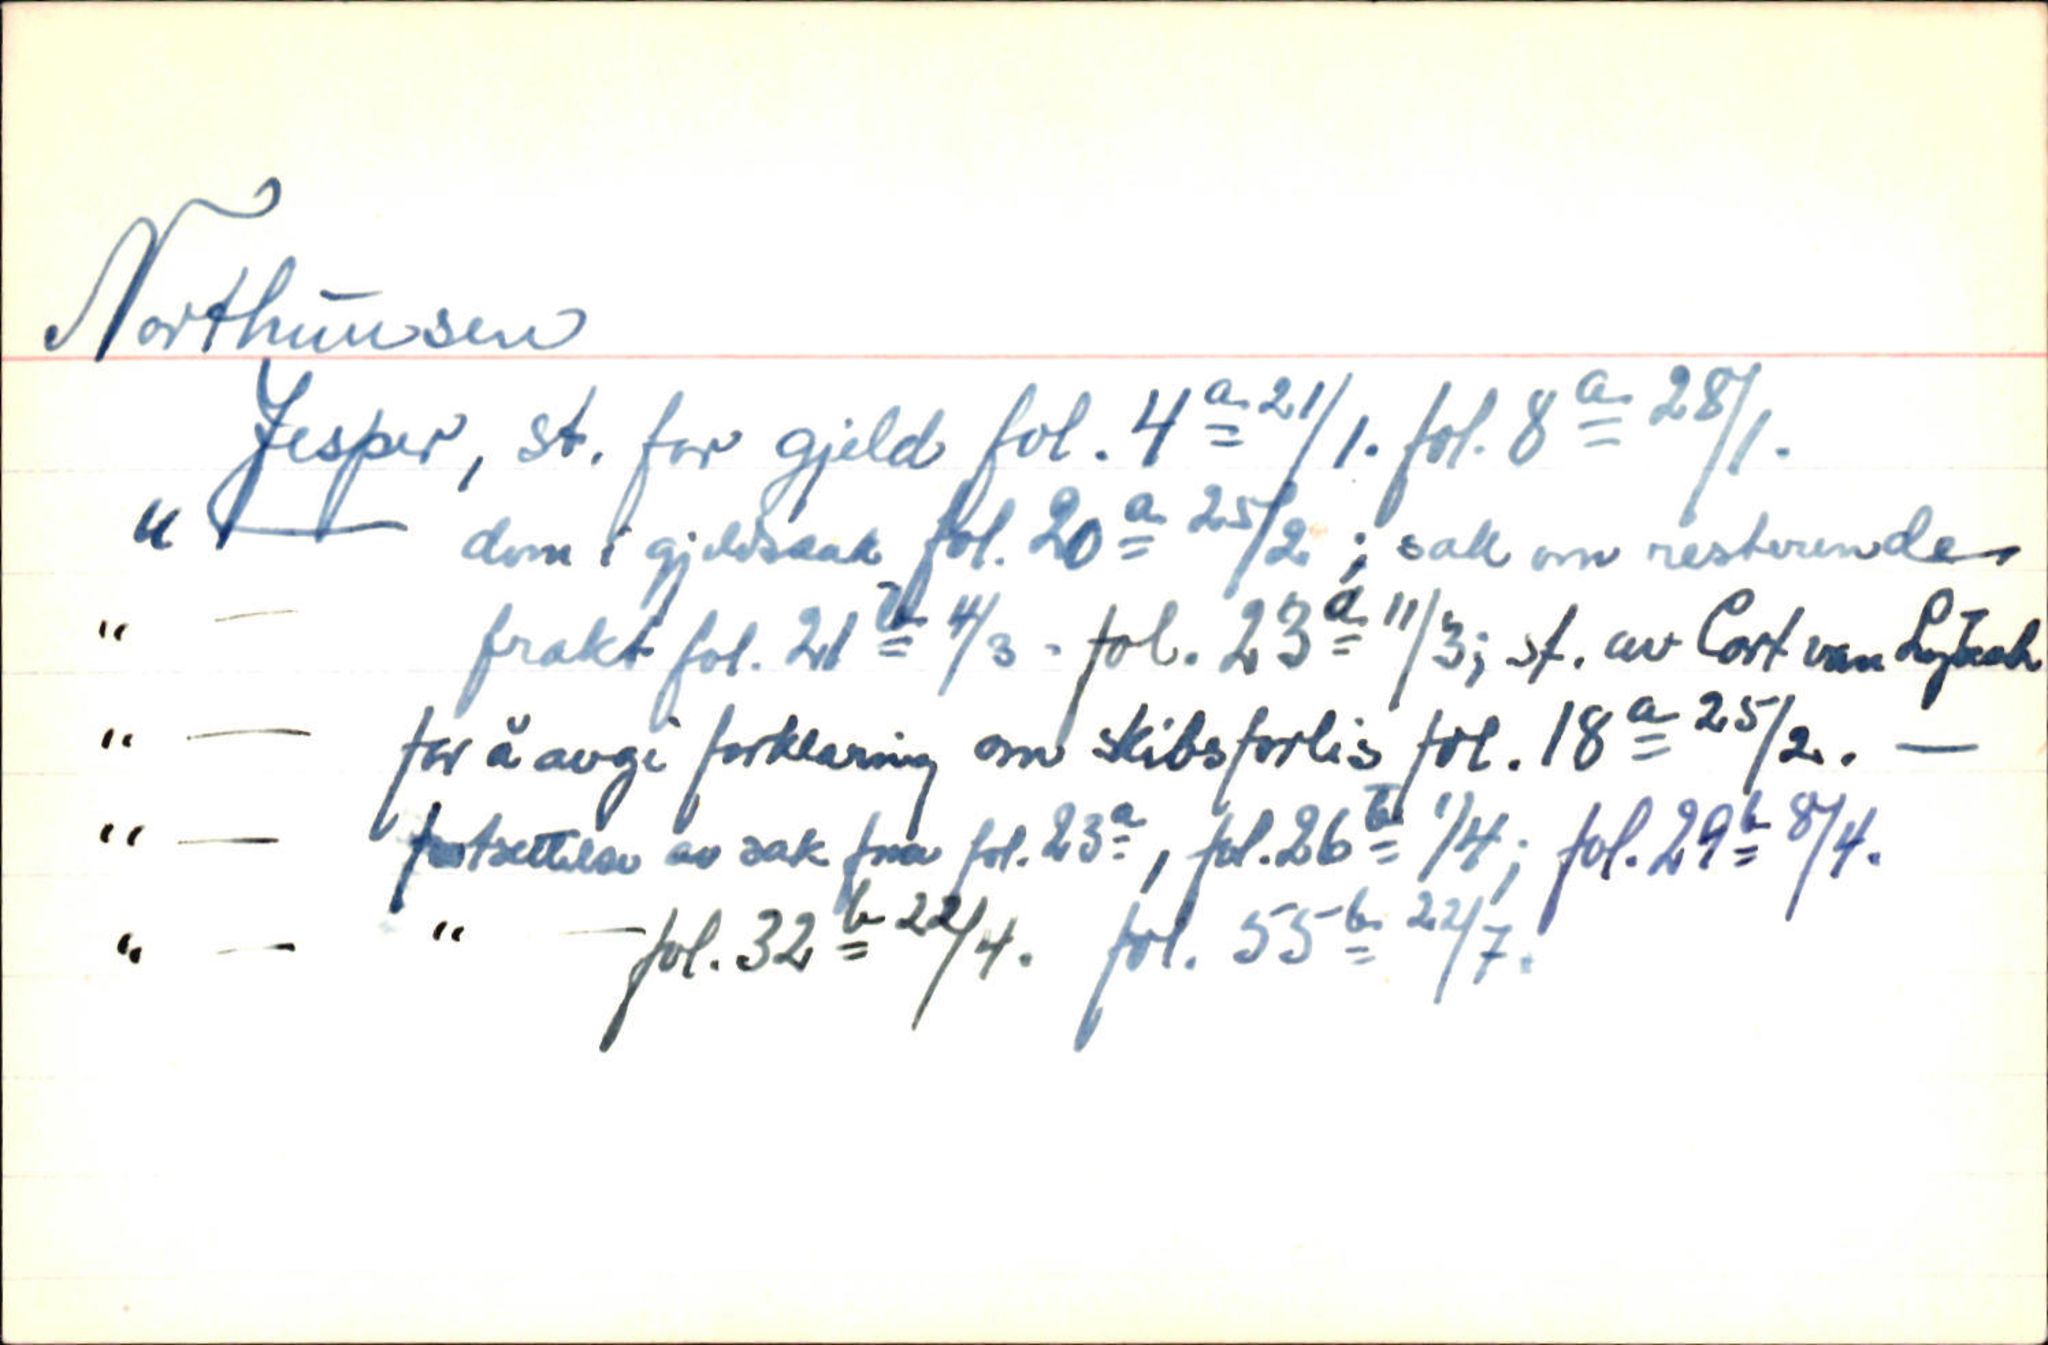 Northūnsen
Jesper, st. for gjeld fol. 4ª 21/1. fol. 8ª 28/1.
" — dom i gjeldssak fol. 20ª 25/2; sak om resterende
" — frakt fol. 21b 4/3. fol. 23a 11/3; st. av Cort van
" — for å avgi forklaring om skibsforlis fol. 18ª 25/2. —
" — fortsettelse av sak fra fol. 23ª, fol. 26b 1/4; fol. 29b 8/4.
" — " — fol. 32b 22/4. fol. 55b 22/7.